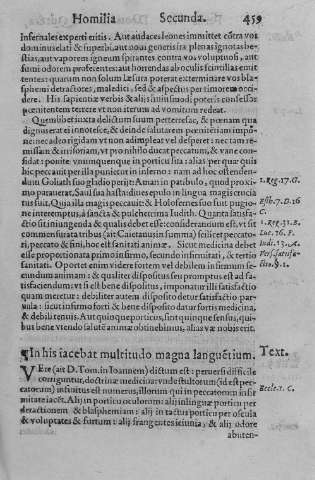 Homilia Secunda. 459
infernales experti eritis. Aut audaces leones immittet cōtra vos
dominulos & superbi, aut noui generis ira plenas ignotas be-
stias, aut vaporem igneum spirantes contra vos volutiones, aut
fumi odorem proferentes: aut horrendas ab oculis scintillas emit
tentes: quarum non solum læsura poterat exterminare vos blas-
phemi detractores, maledici, sed & aspectus per timorem occi-
dere. His sapientiæ verbis & alijs huiusmodi poteris confessæ
pœnitentem terrere vt non iterum ad vomitum redeat.
Quemlibet iuxta delictum suum perterrefac, & pœnam qua
dignus erat ei innotesce, & deinde salutarem pœnitētiam impō-
ne: nec adeo rigidam vt non adimpleat vel desperet: nec tam re-
missam & irrisoriam, vt pro nihilo ducat peccatum, & vane con-
fidat: ponite vnumquenque in porticu sita: alias per quæ quis
hic peccauit per illa punietur in inferno: nam ad hoc ostenden-
dum Goliath suo gladio perijt: Aman in patibulo, quod proxi-
mo parauerat, Saul sua hasta: diues epulo in lingua magis crucia
tus fuit, Qui a illa magis peccauit: & Holofernes suo fuit pugio-
ne interemptus, à sancta & pulcherrima Iudith. Quanta satisfa-
ctio sit iniungenda & qualis debet esse: considerandum est, vt sit
commensurata tribus (ait Caietanus in summa) scilicet peccato-
ri, peccato & fini, hoc est sanitati animæ. Sicut medicina debet
esse proportionata primo infirmo, secundo infirmitati, & tertio
sanitati. Oportet enim videre fortem vel debilem infirmum se-
cundum animam: & qualiter dispositus seu promptus est ad sa-
tisfaciendum: vt si est bene dispositus, imponatur illi satisfactio
quam meretur: debiliter autem disposito detur satisfactio par-
uula: sicut infirmo forti & bene disposito datur fortis medicina,
& debili tenuis. Aut quinque porticus, sint quinque sensus, qui-
bus bene vtendo salutē animæ obtinebimus, alias væ nobis erit.
¶In his iacebat multitudo magna languētium.
VEre (ait D. Tom. in Ioannem) dictum est: peruersi difficile
corriguntur, doctrinæ medicina: vnde stultorum (id est pec-
catorum) infinitus est numerus, illorum qui in peccatorum infir
mitate iacēt. Alij in porticu oculorum: alij in linguæ porticu per
detractionem & blasphemiam: alij in tactus porticu per oscula
& voluptates & furtum: alij frangentes ieiunia, & alij odore
abuten-
1. Reg. 17. G.
Esth. 7. D. 16
C.
1. Reg. 31. B.
Luc. 16. F.
Iudi. 13. A.
Vers. satisfa-
ctio. §. 1.
Text.
Eccle. 1. C.